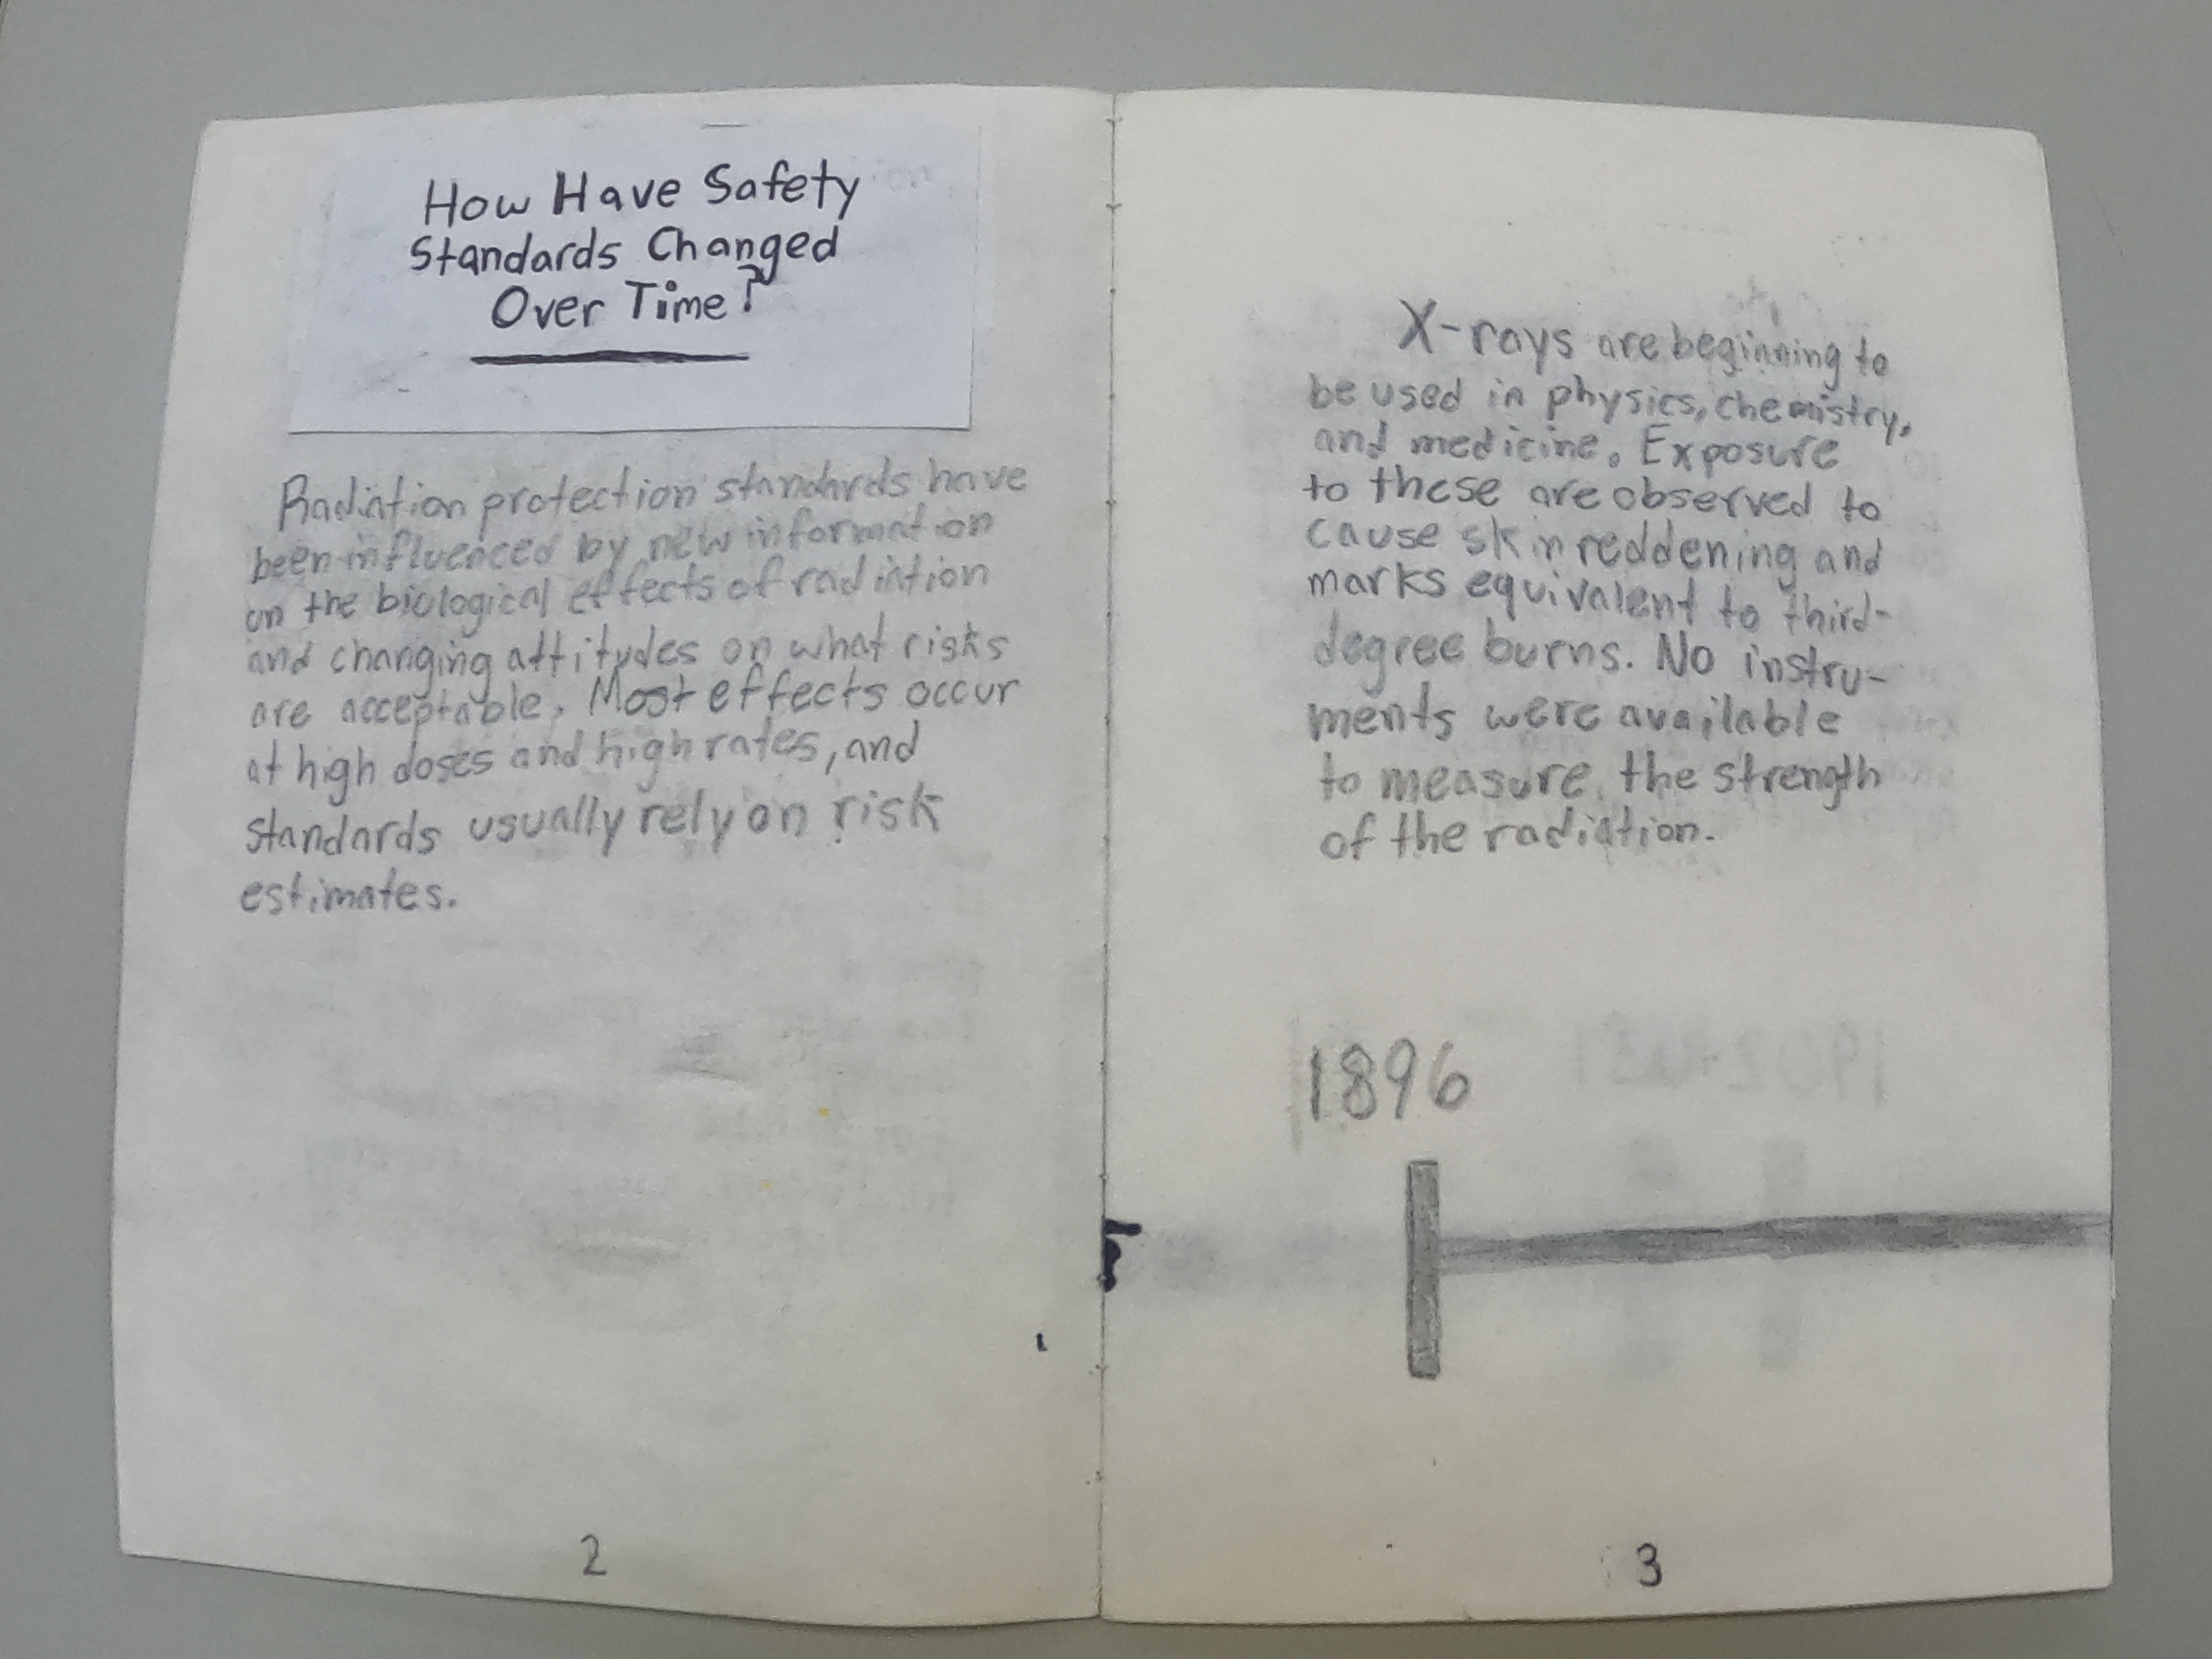 How Have Safety
Standards Changed
Over Time?
Radiation protection standards have
been influenced by new information
on the biological effects of radiation
and changing attitudes on what risks
are acceptable. Most effects occur
at high doses and high rates, and
standards usually rely on risk
estimates.
2
X-rays are beginning to
be used in physics, chemistry,
and medicine. Exposure
to these are observed to
cause skin reddening and
marks equivalent to third-
degree burns. No instru-
ments were available
to measure the strength
of the radiation.
1896
3